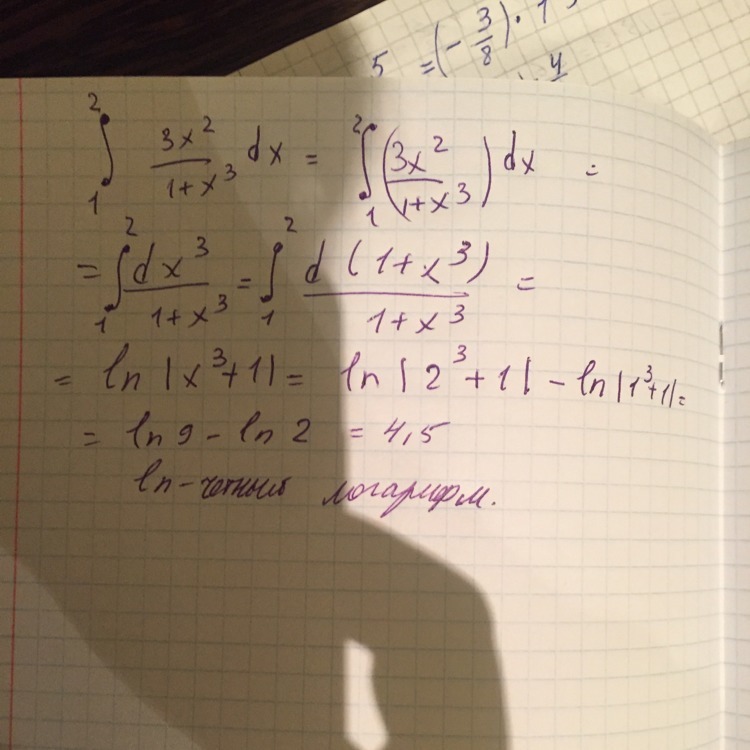 5 = (- 3/8) · 1
4
∫₁² 3x²/(1+x³) dx = ∫₁² (3x²/(1+x³)) dx =
= ∫₁² dx³/(1+x³) = ∫₁² d(1+x³)/(1+x³) =
= ln |x³+1| = ln |2³+1| - ln |1³+1| =
= ln 9 - ln 2 = 4,5
ln - четный логарифм.